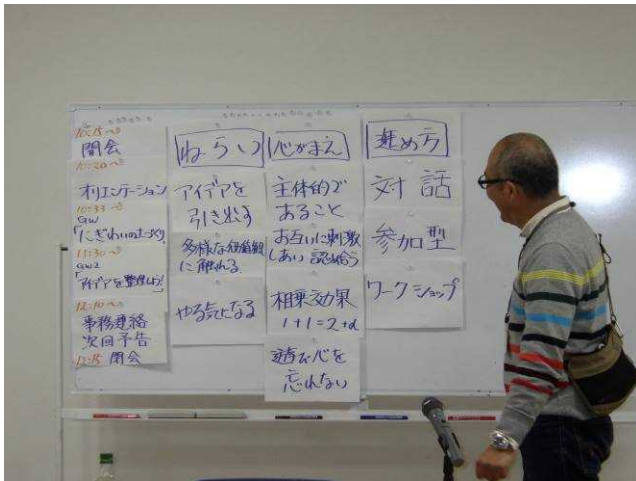 10:15〜
開会
10:20〜
オリエンテーション
10:33〜
GW1
「にぎわいの土づくり」
11:30〜
GW2
「アイデアを整理しよう!」
12:10〜
事務連絡
次回予告
12:15 閉会
ねらい
アイデアを
引き出す
多様な価値観
に触れる
やる気になる
心がまえ
主体的で
あること
お互いに刺激
しあい 認め合う
相乗効果
1+1=2+α
遊び心を
忘れない
進め方
対話
参加型
ワークショップ